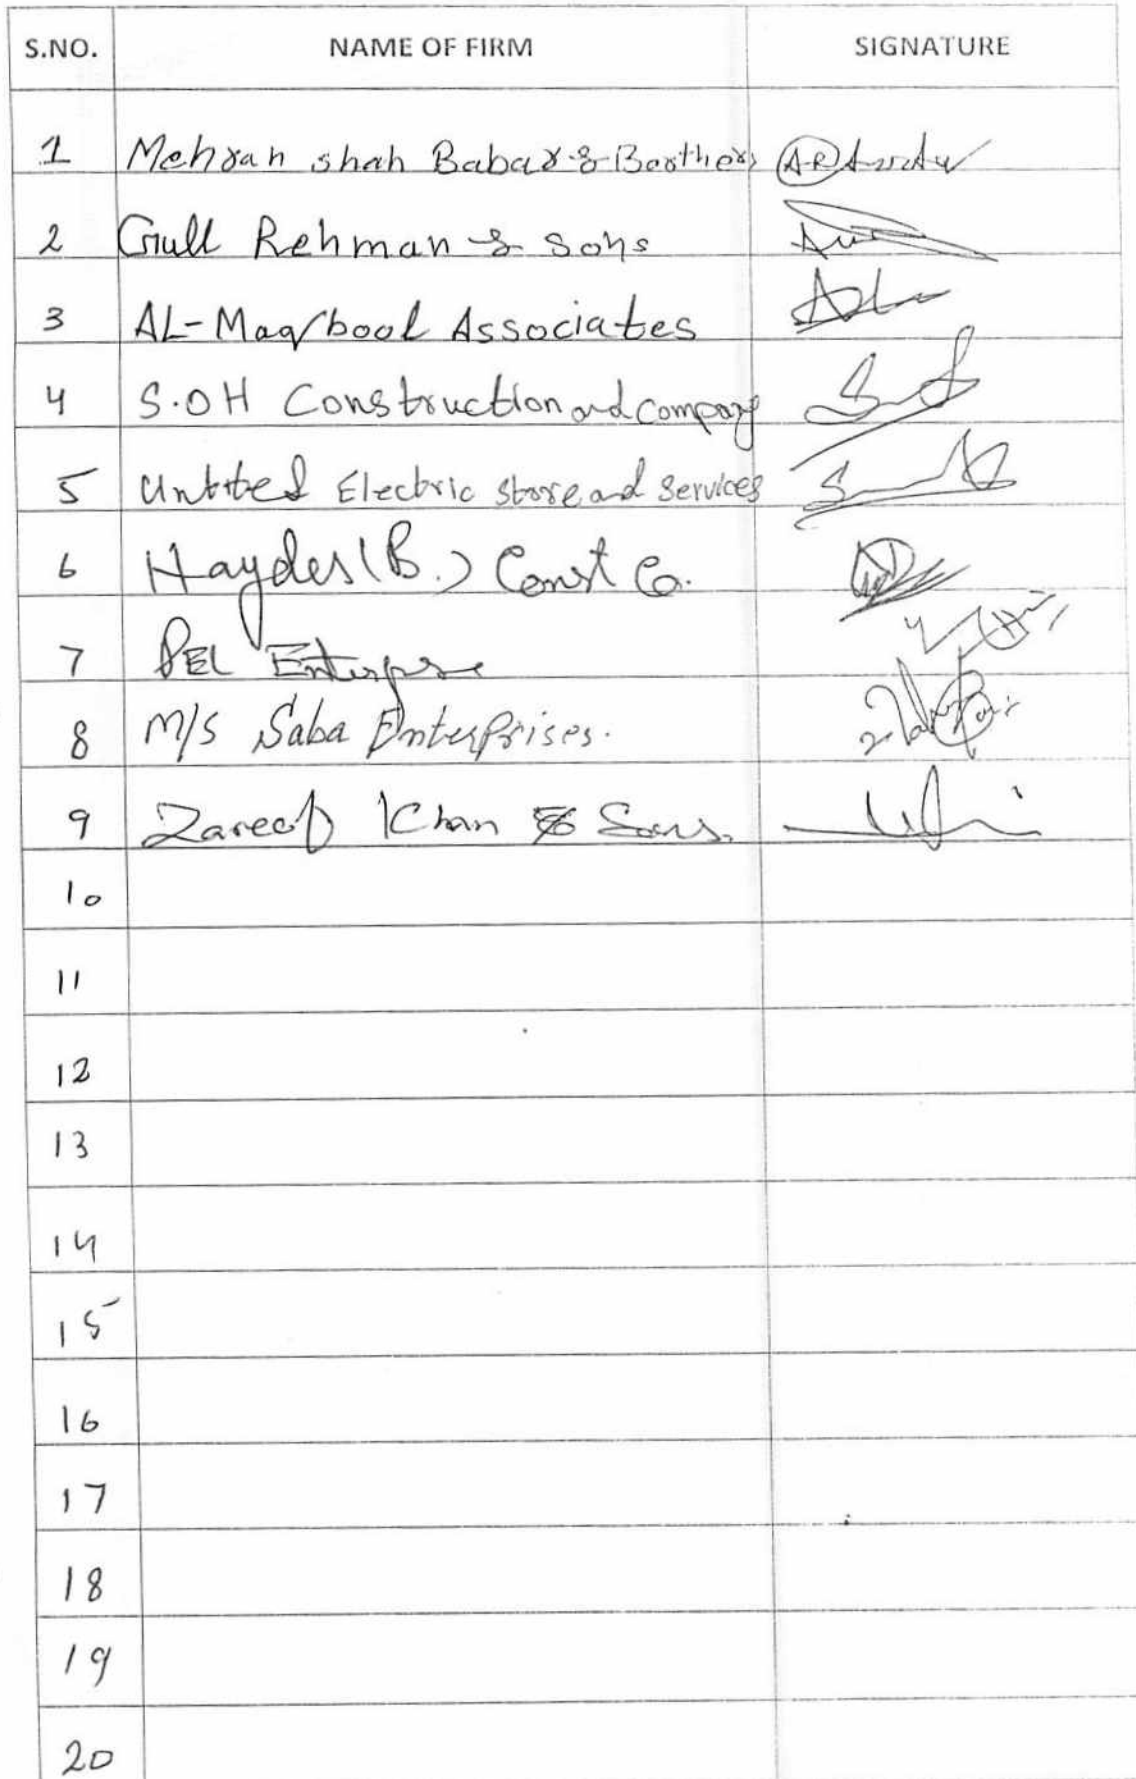 S.NO. NAME OF FIRM SIGNATURE
1 Mehran shah Babar & Boother
2 Gull Rehman & sons
3 AL-Maqbool Associates
4 S.OH Construction and company
5 Electric store and services
6 (B.) Const Co.
7 PEL
8 M/S Saba Enterprises.
9 Zareef Khan & Sons.
10
11
12
13
14
15
16
17
18
19
20